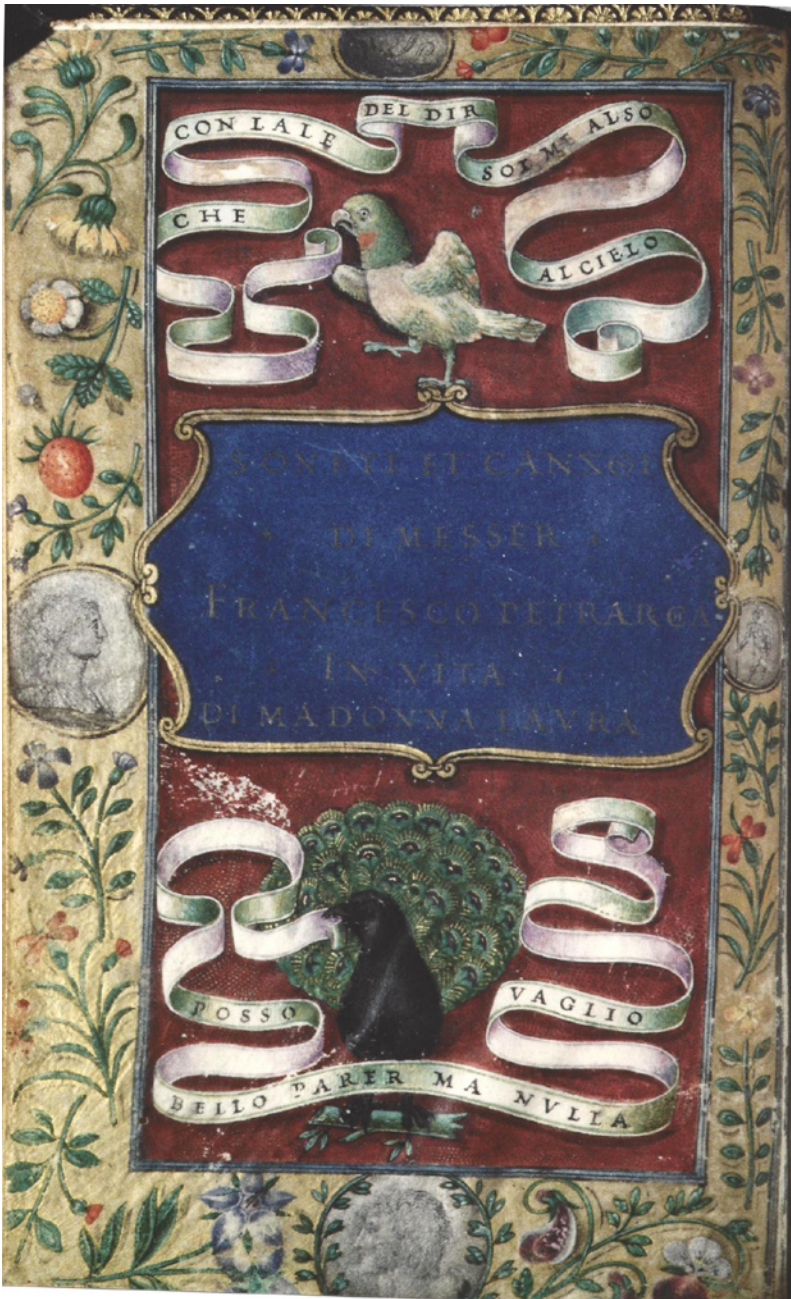 CHE
CON LALE
DEL DIR
SOL ME ALSO
AL CIELO
SONETI ET CANXOI
DI MESSER
FRANCESCO PETRARCHA
IN VITA
DI MADONNA LAVRA
POSSO
BELLO PARER MA NVLLA
VAGLIO